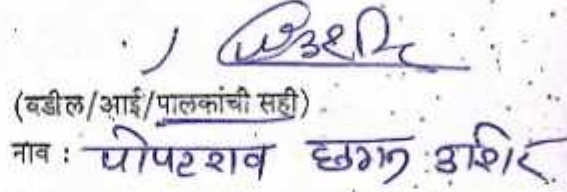 (वडील/आई/पालकांची सही)
नाव : पोपटराव छगन अहिरे